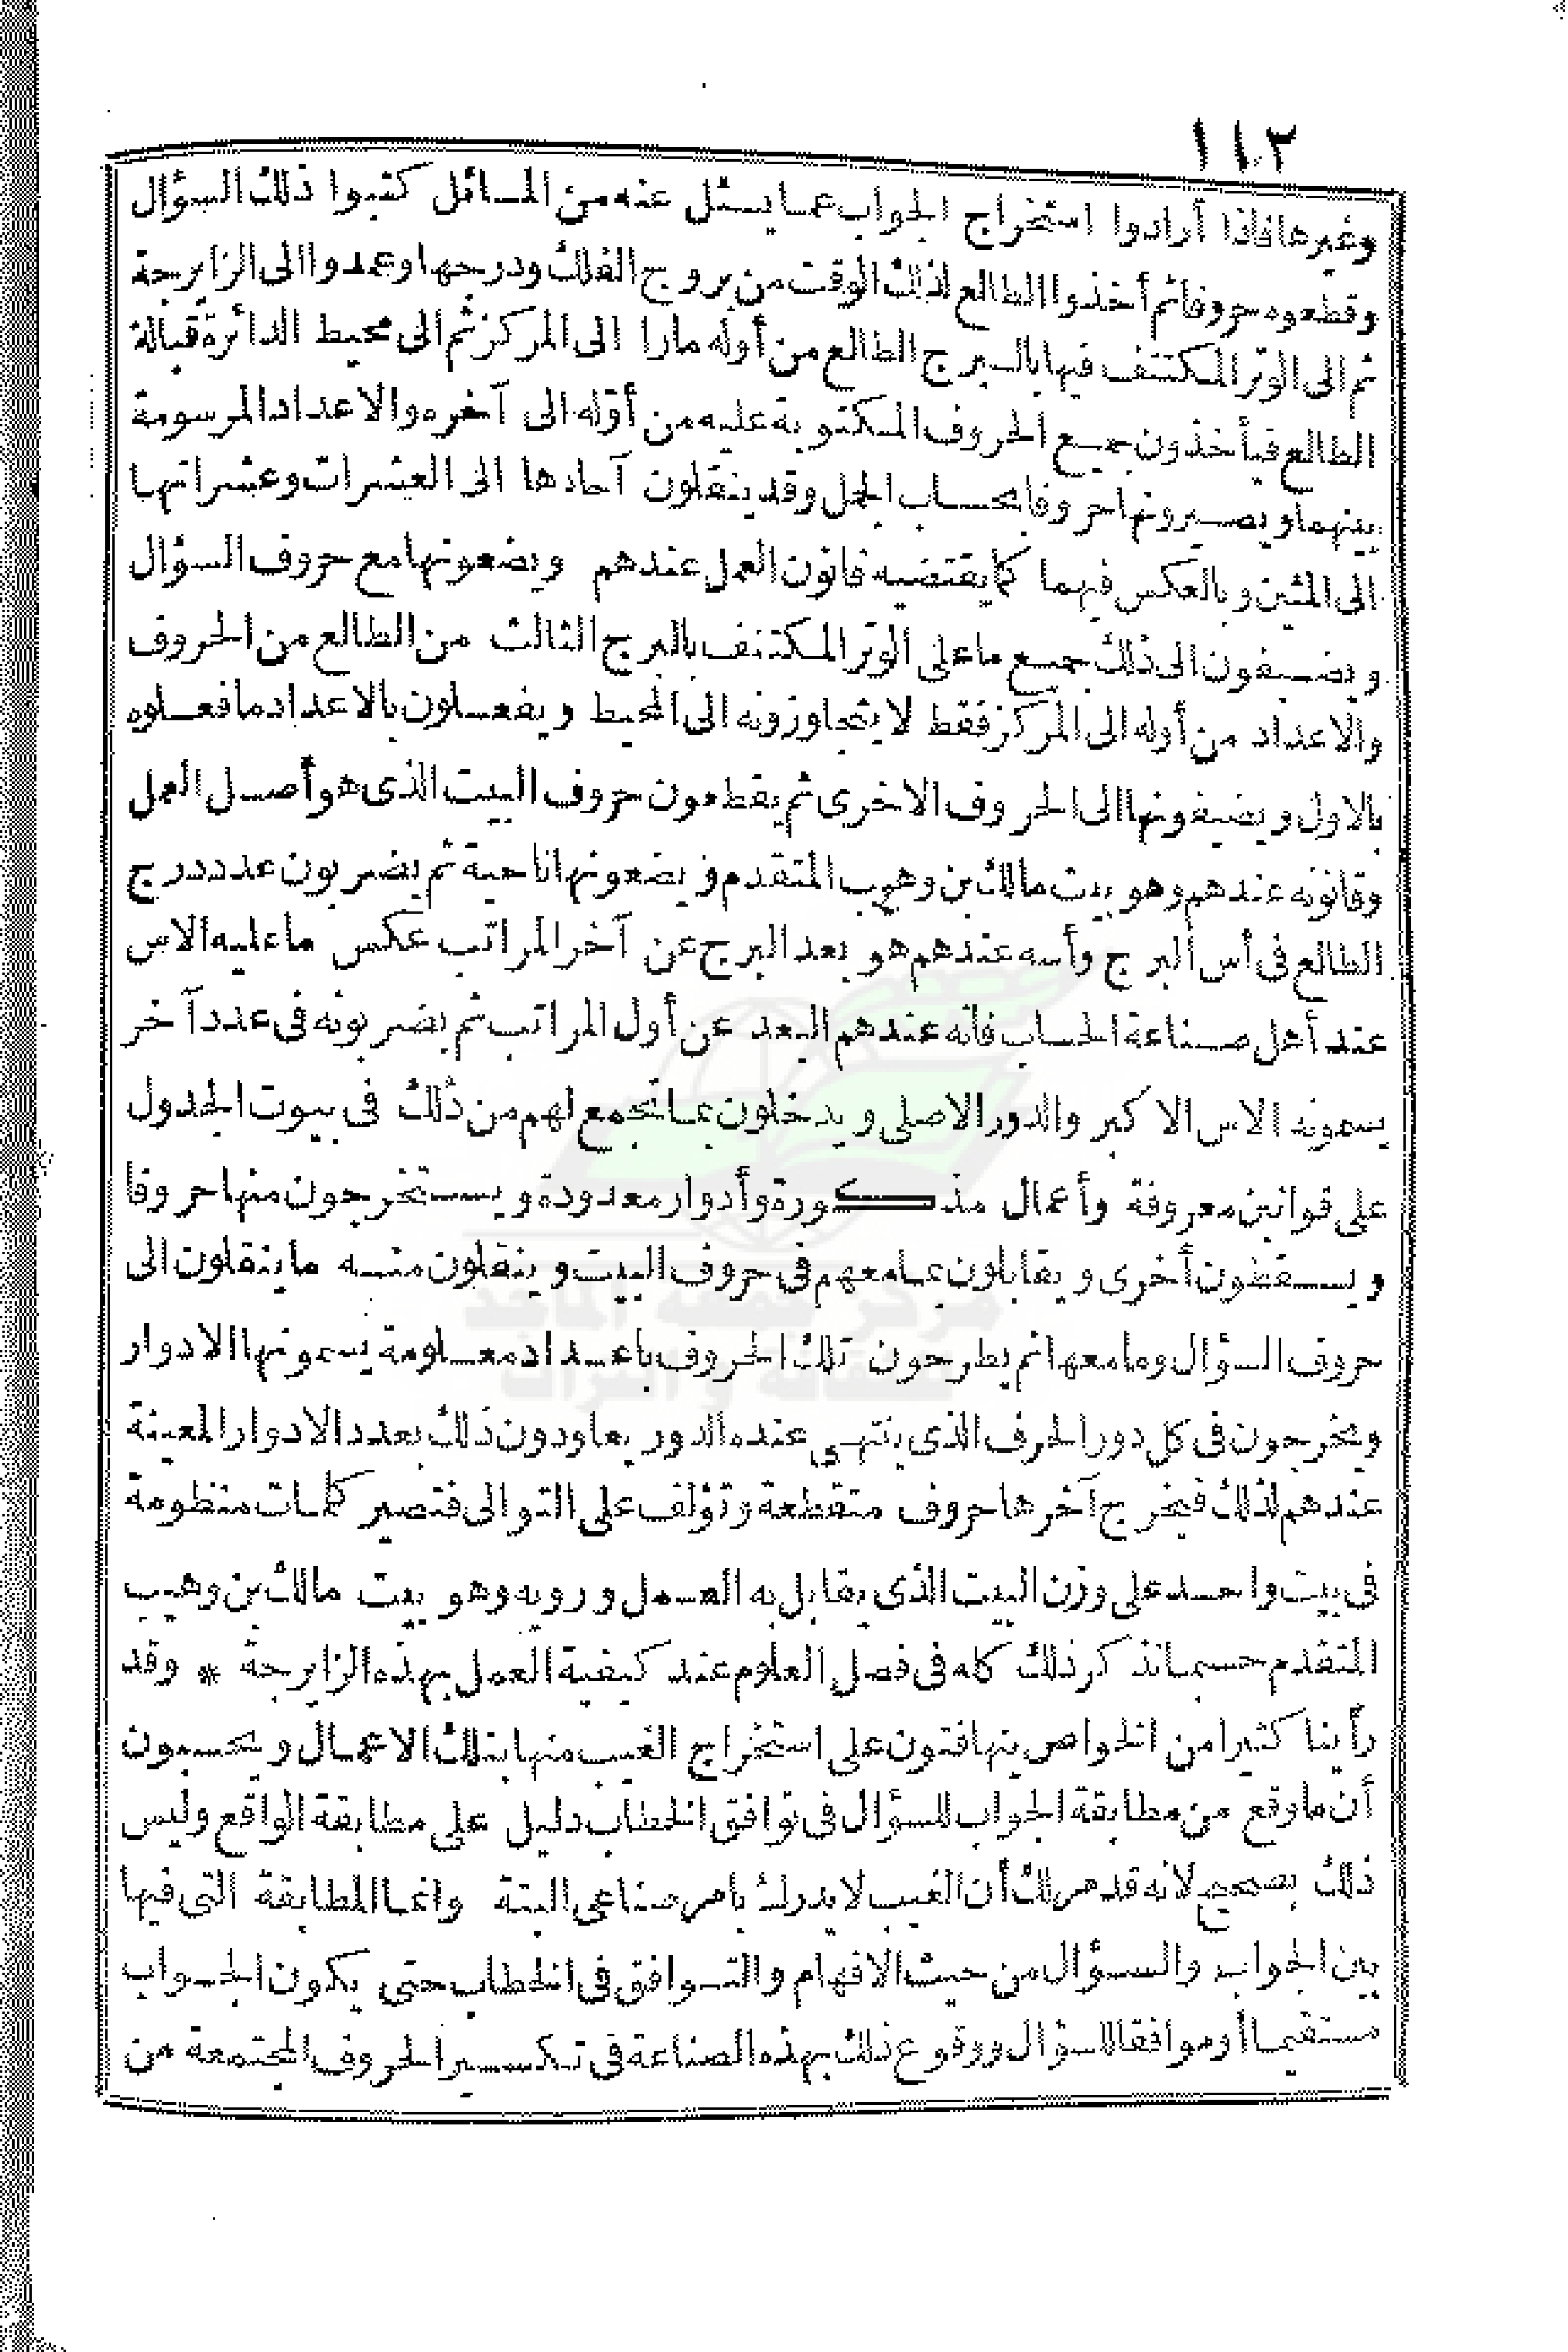 ١١٢
وغيرها فاذا أرادوا استخراج الجواب عما يسئل عنه من المسائل كتبوا ذلك السؤال
وقطعوه حروفا ثم أخذوا الطالع لذلك الوقت من بروج الفلك ودرجها وعمدوا الى الزايرجة
ثم الى الوتر المكتنف فيها بالبرج الطالع من أوله مارا الى المركز ثم الى محيط الدائرة قبالة
الطالع فيأخذون جميع الحروف المكتوبة عليه من أوله الى آخره والاعداد المرسومة
بينهما ويصيرونها حروفا بحساب الجمل وقد ينقلون آحادها الى العشرات وعشراتها
الى المئين وبالعكس فيهما كما يقتضيه قانون العمل عندهم ويضعونها مع حروف السؤال
ويضيفون الى ذلك جميع ما على الوتر المكتنف بالبرج الثالث من الطالع من الحروف
والاعداد من أوله الى المركز فقط لا يتجاوزونه الى المحيط ويفعلون بالاعداد ما فعلوه
بالاول ويضيفونها الى الحروف الاخرى ثم يقطعون حروف البيت الذى هو أصل العمل
وقانونه عندهم وهو بيت مالك بن وهيب المتقدم ويضعونها ناحية ثم يضربون عدد درج
الطالع فى أس البرج وأسه عندهم هو بعد البرج عن آخر المراتب عكس ما عليه الاس
عند أهل صناعة الحساب فانه عندهم البعد عن أول المراتب ثم يضربونه فى عدد آخر
يسمونه الاس الاكبر والدور الاصلى ويدخلون بما تجمع لهم من ذلك فى بيوت الجدول
على قوانين معروفة وأعمال مذكورة وأدوار معدودة ويستخرجون منها حروفا
ويسقطون أخرى ويقابلون بما معهم فى حروف البيت وينقلون منه ما ينقلون الى
حروف السؤال وما معها ثم يطرحون تلك الحروف باعداد معلومة يسمونها الادوار
ويخرجون فى كل دور الحرف الذى ينتهى عنده الدور يعاودون ذلك بعدد الادوار المعينة
عندهم لذلك فيخرج آخرها حروف متقطعة وتؤلف على التوالى فتصير كلمات منظومة
فى بيت واحد على وزن البيت الذى يقابل به العمل ورويه وهو بيت مالك بن وهيب
المتقدم حسبما نذكر ذلك كله فى فصل العلوم عند كيفية العمل بهذه الزايرجة * وقد
رأينا كثيرا من الخواص يتهافتون على استخراج الغيب منها بتلك الاعمال ويحسبون
أن ما وقع من مطابقة الجواب للسؤال فى توافق الخطاب دليل على مطابقة الواقع وليس
ذلك بصحيح لانه قد مر لك أن الغيب لا يدرك بامر صناعى البتة وانما المطابقة التى فيها
بين الجواب والسؤال من حيث الافهام والتوافق فى الخطاب حتى يكون الجواب
مستقيما أو موافقا للسؤال ووقوع ذلك بهذه الصناعة فى تكسير الحروف المجتمعة من
مركز جمعة الماجد
للثقافة والتراث